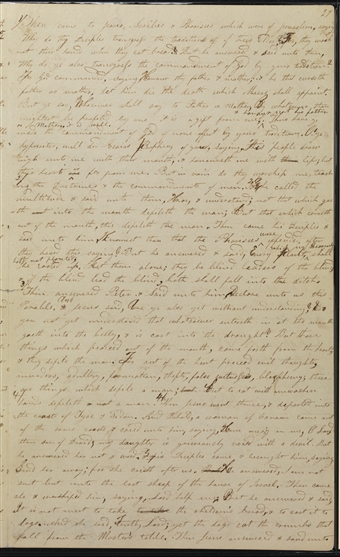 29
Then came to Jesus, Scribes & Pharisees which were of Jerusalem, saying
Why do thy disciples transgress the tradition of the Elders? for they wash
not their hands when they eat bread. But he answered & said unto them,
Why do ye also transgress the commandment of God by your tradition?
For God commanded, saying, Honour thy father & mother; & he that curseth
father or mother, let him die the death which Moses shall appoint.
But ye say, Whosoever shall say to father or mother, by whatsoever thou
mightest be profited by me, it is a gift from me & honour not his father
or mother, it is well.
commandment of God of none effect by your tradition. O ye
hypocrites, well did Esaias prophesy of you, saying, This people draw
nigh unto me with their mouth, & honoureth me with lips; but
their heart is far from me. But in vain do they worship me, teach
ing the doctrines & the commandments of men. And he called the
multitude & said unto them, Hear, & understand; not that which go
eth into the mouth defileth the man; but that which cometh
out of the mouth, this defileth the man. Then came his disciples &
said unto him, Knowest thou that the Pharisees were offended, after
they heard this saying? But he answered & said, Every plant, which
my heavenly Father hath not planted,
shall be rooted up. Let them alone; they be blind leaders of the blind;
& if the blind lead the blind, both shall fall into the ditch.
Then answered Peter & said unto him, declare unto us this
Parable. And Jesus said, Are ye also yet without understanding? Do
ye not yet understand that whatsoever entereth in at the mouth
goeth into the belly, & is cast into the draught? But those
things which proceed out of the mouth, come forth from the heart,
& they defile the man. For out of the heart proceed evil thoughts,
murders, adultery, fornication, thefts, false witness, blasphemy; these
are things which defile a man; but to eat with unwashen
hands defileth not a man. Then Jesus went thence, & departed into
the coast of Tyre & Sidon. And behold, a woman of Canaan came out
of the same coasts & cried unto him, saying, Have mercy on me, O Lord,
thou son of David; my daughter is grievously vexed with a devil. But
he answered her not a word. And his disciples came & besought him, saying,
Send her away; for she crieth after us. He answered, I am not
sent but unto the lost sheep of the house of Israel. Then came
she & worshiped him, saying, Lord help me. But he answered & said,
It is not meet to take the children's bread, & to cast it to
dogs. And she said, Truth, Lord; yet the dogs eat the crumbs that
fall from the Master's table. Then Jesus answered & said unto